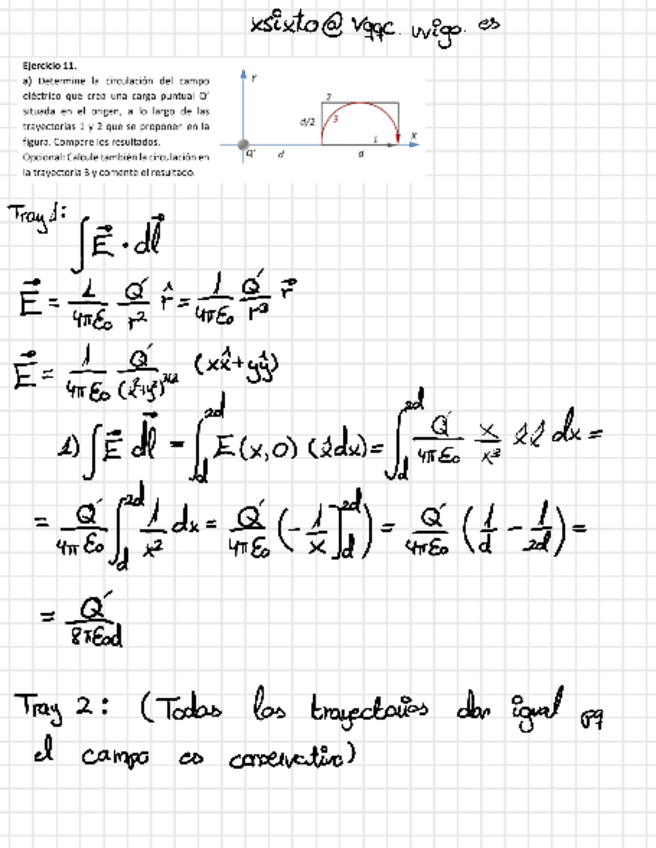 xsixto@vqqc.uvigo.es
Ejercicio 11.
a) Determine la circulación del campo
eléctrico que crea una carga puntual Q'
situada en el origen, a lo largo de las
trayectorias 1 y 2 que se proponen en la
figura. Compare los resultados.
Opcional: Calcule también la circulación en
la trayectoria 3 y comente el resultado.
Y
2
d/2
3
1
X
Q'
d
d
Tray 1:
∫ E⃗ · dl⃗
E⃗ = 1/(4πε₀) Q'/r² r̂ = 1/(4πε₀) Q'/r³ r⃗
E⃗ = 1/(4πε₀) Q'/(x²+y²)^(3/2) (xx̂+yŷ)
1) ∫ E⃗ dl⃗ = ∫_d^2d E(x,0) (x̂dx) = ∫_d^2d Q'/(4πε₀) x/x³ x̂x̂ dx =
= Q'/(4πε₀) ∫_d^2d 1/x² dx = Q'/(4πε₀) (-1/x]_d^2d) = Q'/(4πε₀) (1/d - 1/2d) =
= Q'/(8πε₀d)
Tray 2: (Todas las trayectorias dan igual pq
el campo es conservativo)